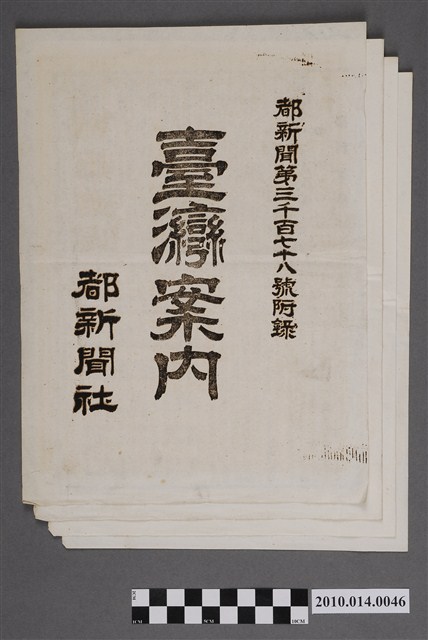 都新聞第三千百七十八號附錄
臺灣案内
都新聞社
5CM
10CM
2010.014.0046